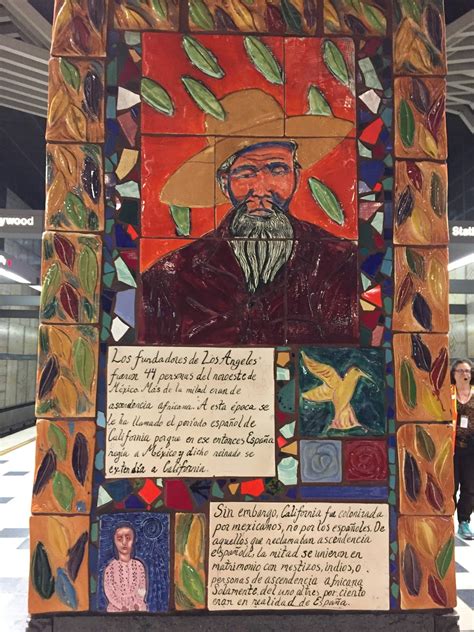 ywood
Stati
Los fundadores de Los Angeles
fueron 44 personas del noroeste de
México. Más de la mitad eran de
ascendencia africana. A esta época se
le ha llamado el período español de
California porque en ese entonces España
regía a México y dicho reinado se
extendía a California.
Sin embargo, California fue colonizada
por mexicanos, no por los españoles. De
aquellos que reclamaban ascendencia
española, la mitad se unieron en
matrimonio con mestizos, indios, o
personas de ascendencia africana.
Solamente, del uno al tres por ciento
eran en realidad de España.